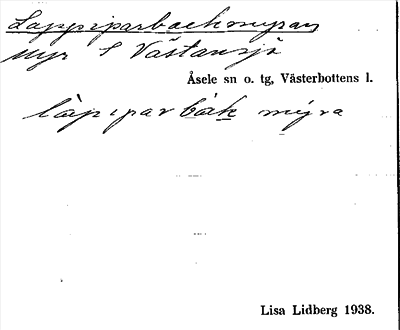 Lappiparbackmyran
myr S Västansjö
Åsele sn o. tg, Västerbottens l.
làpıparbák mýra
Lisa Lidberg 1938.